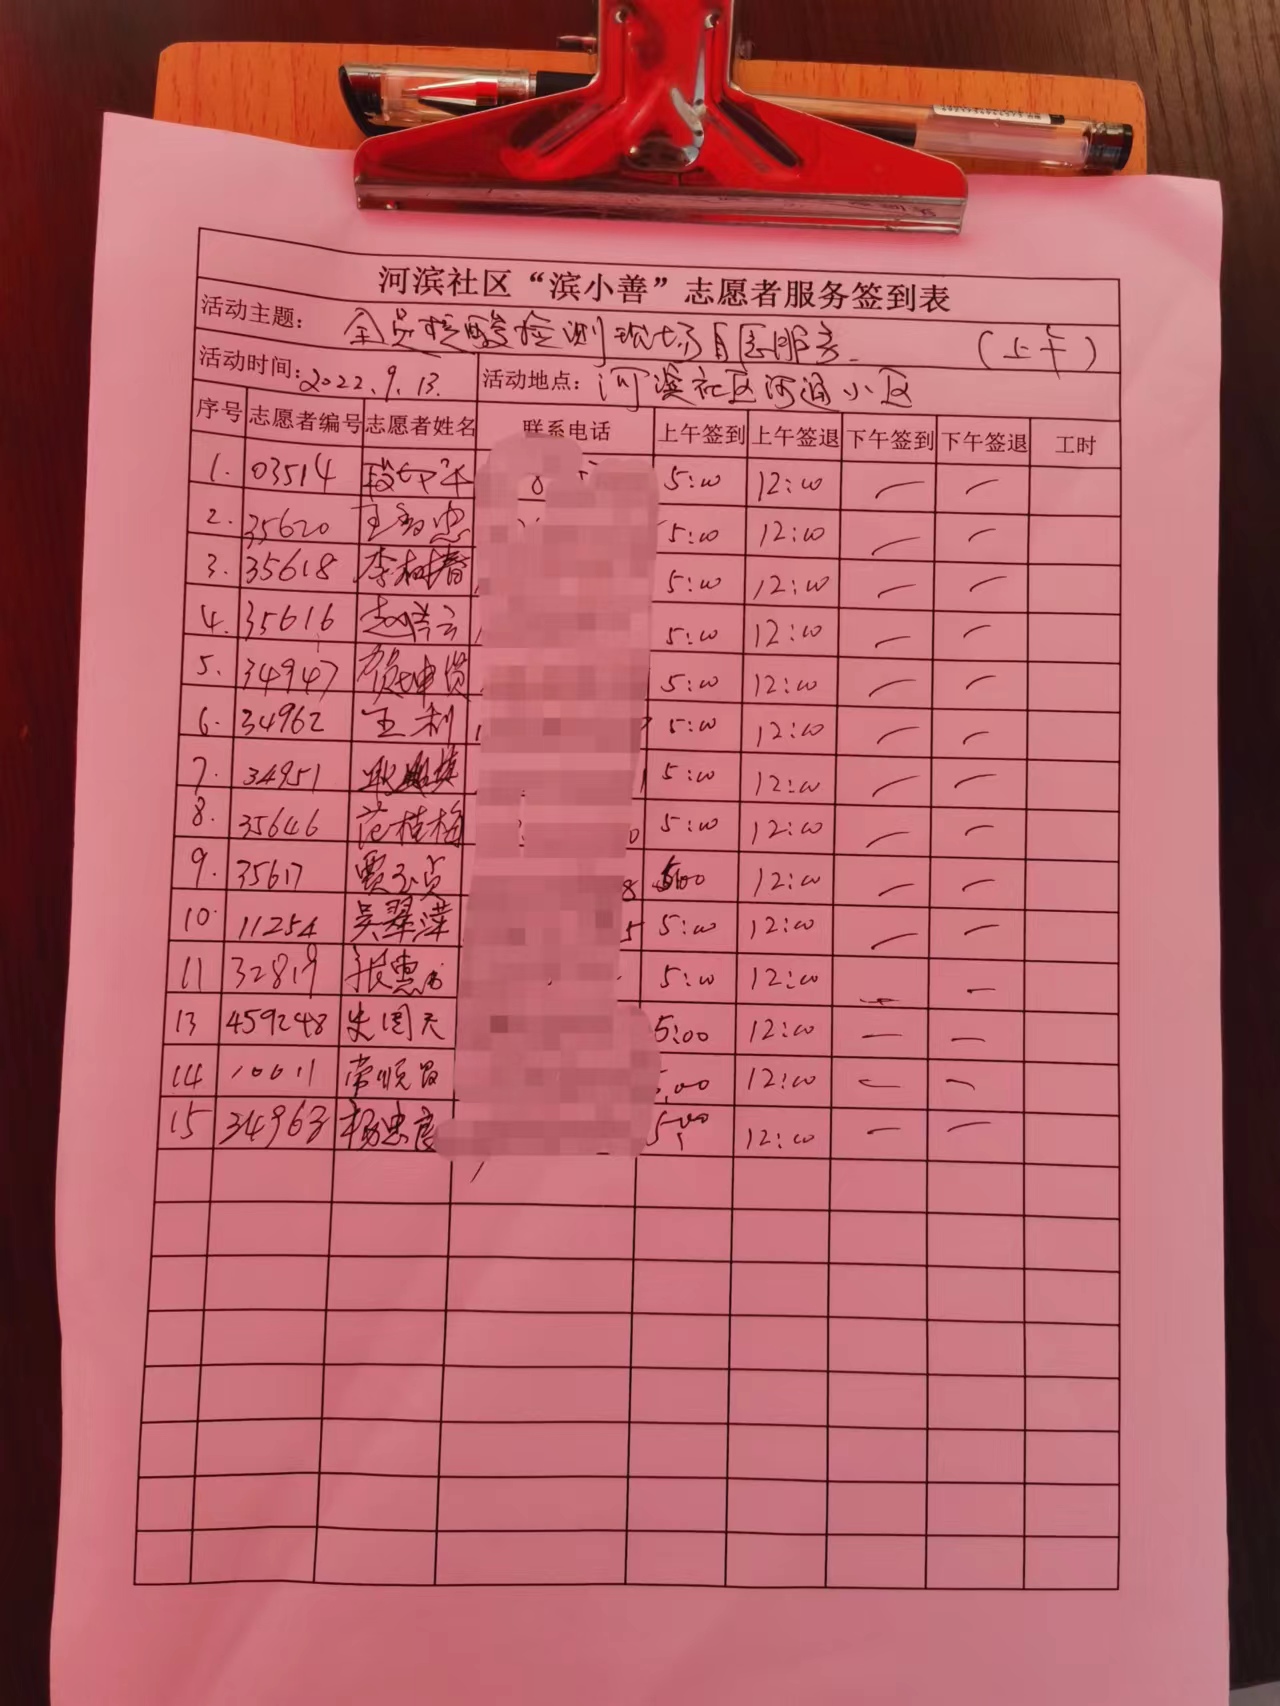 河滨社区“滨小善”志愿者服务签到表
活动主题: 全员核酸检测现场志愿服务 (上午)
活动时间: 2022.9.13. 活动地点: 河滨社区河通小区
序号 志愿者编号 志愿者姓名 联系电话 上午签到 上午签退 下午签到 下午签退 工时
1. 03514 5:00 12:00 — —
2. 35620 5:00 12:00 — —
3. 35618 李树春 5:00 12:00 — —
4. 35616 5:00 12:00 — —
5. 34947 贺坤贤 5:00 12:00 — —
6. 34962 王利 5:00 12:00 — —
7. 34951 5:00 12:00 — —
8. 35646 范桂梅 5:00 12:00 — —
9. 35617 贾玉贞 5:00 12:00 — —
10. 11254 吴翠萍 5:00 12:00 — —
11 32819 5:00 12:00 — —
13 459248 史国天 5:00 12:00 — —
14 10011 常顺昌 5:00 12:00 — —
15 34963 杨忠彦 5:00 12:00 — —